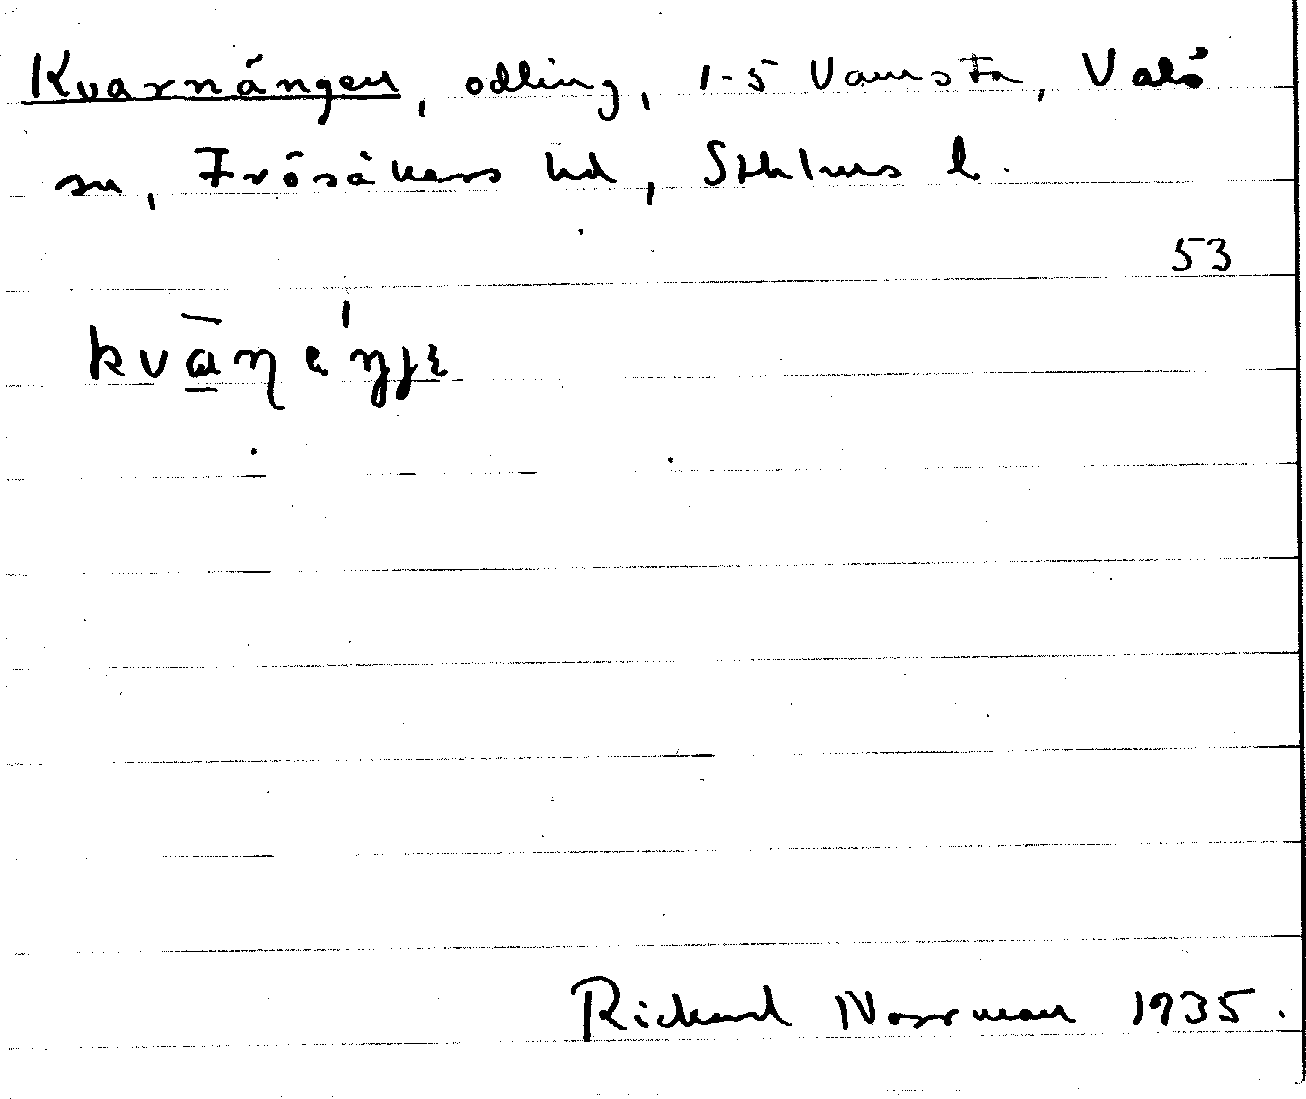 Kvarnängen, odling, 1-5 Vamsta, Valö
sn, Frösåkers hd, Sthlms l.
53
Rickard Norrman 1935.